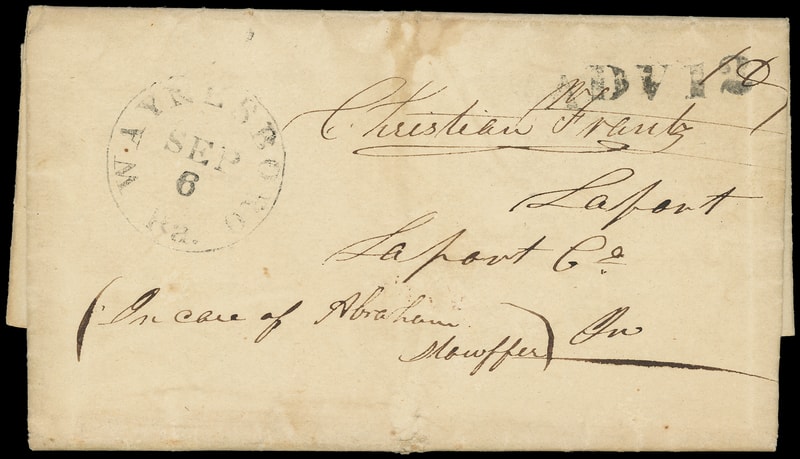 WAYNESBORO
SEP
6
Pa.
ADV 12
Christian Frantz
Laport
Laport Co
(In care of Abraham
Stouffer) In